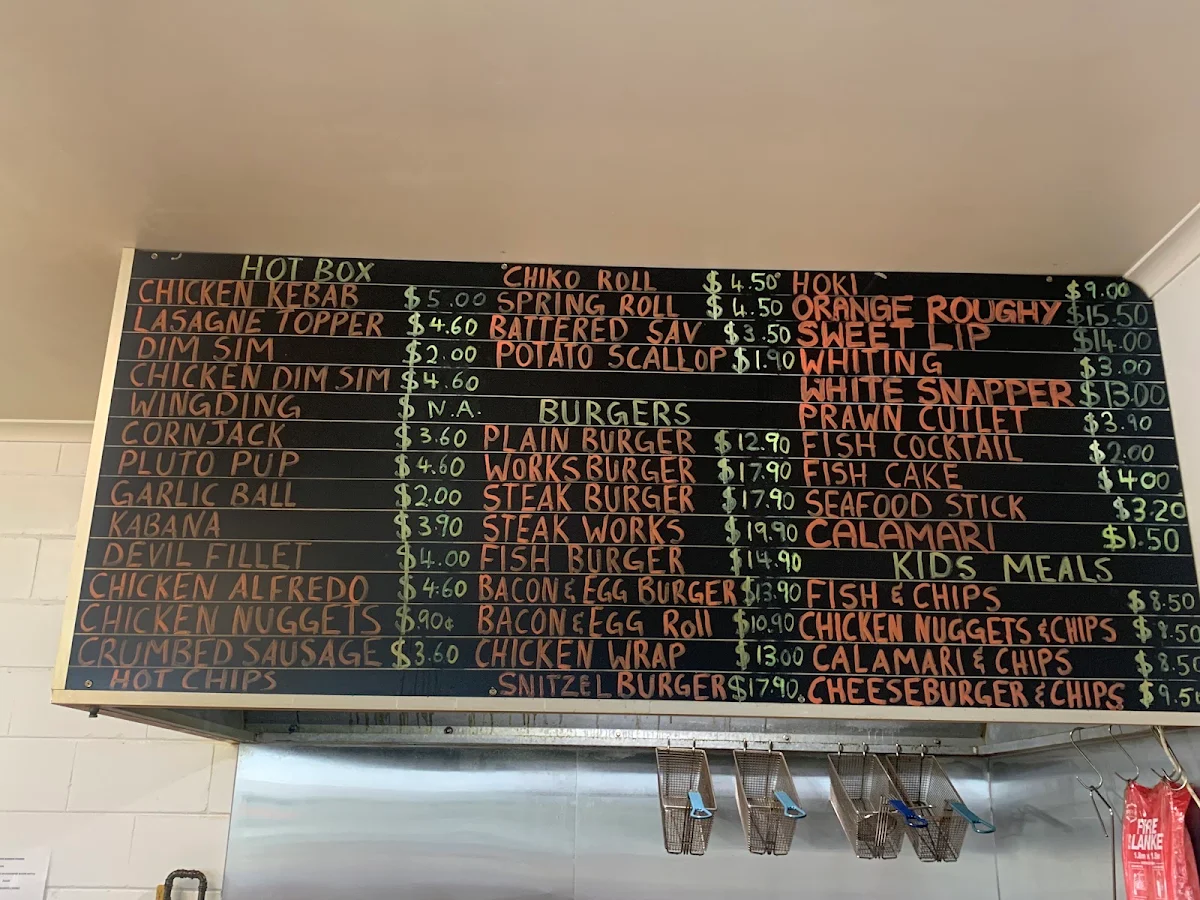 HOT BOX
CHICKEN KEBAB $5.00
LASAGNE TOPPER $4.60
DIM SIM $2.00
CHICKEN DIM SIM $4.60
WINGDING $ N.A.
CORNJACK $3.60
PLUTO PUP $4.60
GARLIC BALL $2.00
KABANA $3.90
DEVIL FILLET $4.00
CHICKEN ALFREDO $4.60
CHICKEN NUGGETS $90¢
CRUMBED SAUSAGE $3.60
HOT CHIPS
CHIKO ROLL $4.50
SPRING ROLL $4.50
BATTERED SAV $3.50
POTATO SCALLOP $1.90
BURGERS
PLAIN BURGER $12.90
WORKS BURGER $17.90
STEAK BURGER $17.90
STEAK WORKS $19.90
FISH BURGER $14.90
BACON & EGG BURGER $13.90
BACON & EGG Roll $10.90
CHICKEN WRAP $13.00
SNITZEL BURGER $17.90
HOKI $9.00
ORANGE ROUGHY $15.50
SWEET LIP $14.00
WHITING $3.00
WHITE SNAPPER $13.00
PRAWN CUTLET $3.90
FISH COCKTAIL $2.00
FISH CAKE $4.00
SEAFOOD STICK $3.20
CALAMARI $1.50
KIDS MEALS
FISH & CHIPS $8.50
CHICKEN NUGGETS & CHIPS
CALAMARI & CHIPS $8.50
CHEESEBURGER & CHIPS $9.50
FIRE
BLANKET